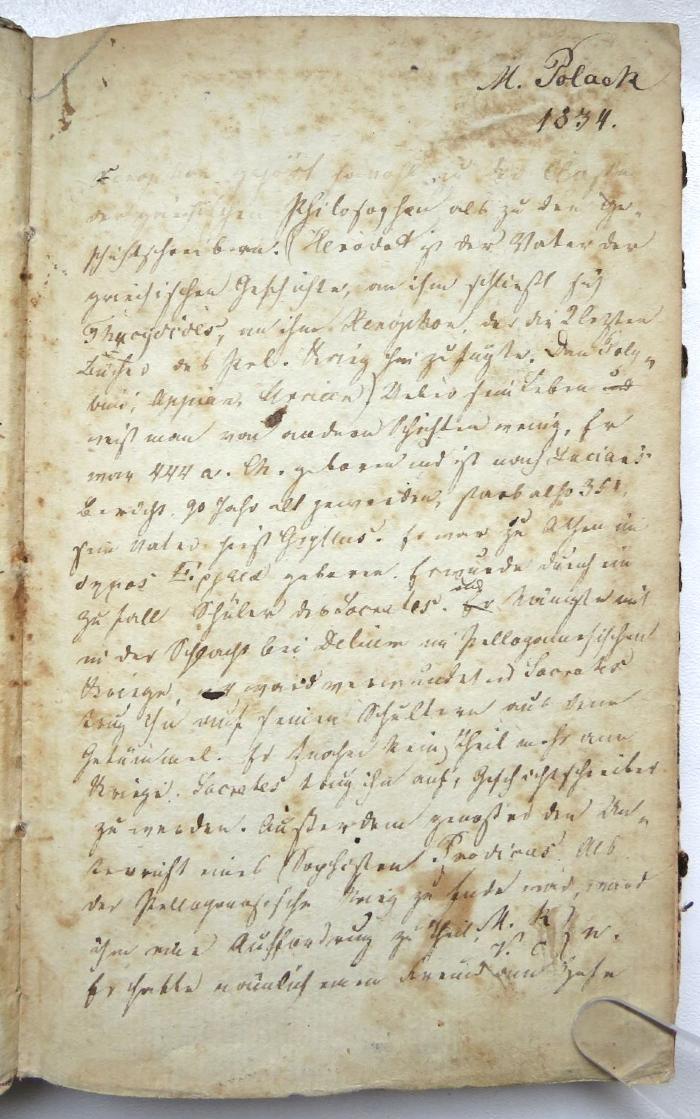 M. Polack
1834.
Xenophon gehört sowohl zu der Classe
der griechischen Philosophen als zu den Ge-
schichtschreibern. (Herodot ist der Vater der
griechischen Geschichte, an ihm schließt sich
Thucydides, an ihm Xenophon, der die 2 letzten
Bücher des Pel. Krieg hinzufügte. Dann Poly-
bius, Appian, Arrian) Ueber sein Leben
weiß man von andern Schriften wenig. Er
war 444 a. Ch. geboren und ist nach Lucians
Bericht 90 Jahr alt geworden, starb also 354.
Sein Vater hieß Gryllus. Er war zu Athen im
geboren. Er wurde durch ein
Zufall Schüler des Socrates. und kämpfte mit
in der Schlacht bei Delium im Pelloponnesischen
Kriege, ward verwundet und Socrates
trug ihn auf seinen Schultern aus dem
Getümmel. Er kein Theil mehr am
Kriege. Socrates trug ihm auf, Geschichtschreiber
zu werden. Außerdem genoß er den Un-
terricht eines Sophisten Prodicus. Als
der Pelloponnesische Krieg zu Ende war, ward
ihm eine Aufforderung zu Theil,
Er hatte nämlich einen Freund